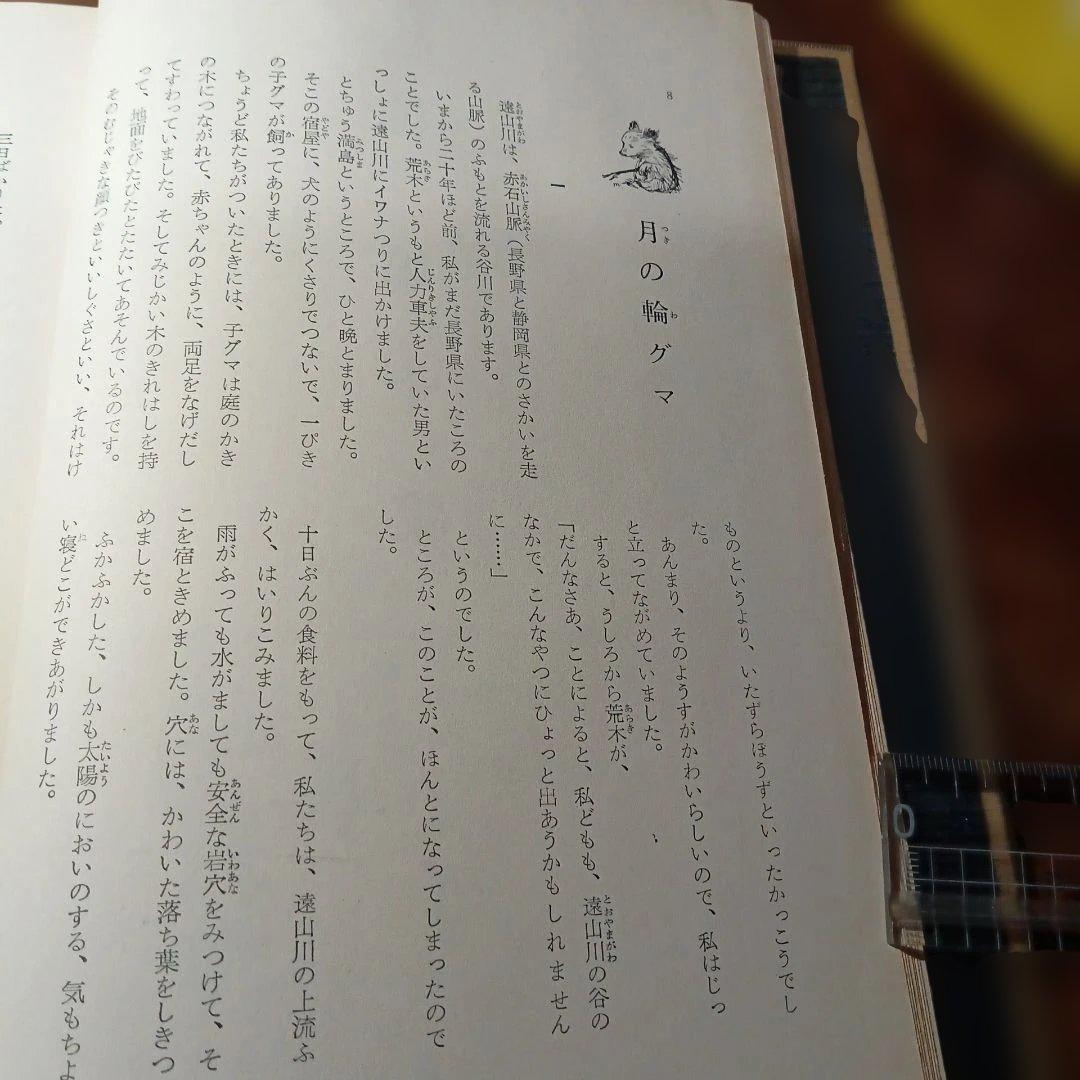 8
月の輪グマ
つき
わ
一
遠山川は、赤石山脈（長野県と静岡県とのさかいを走
とおやまがわ
あかいしさんみゃく
る山脈）のふもとを流れる谷川であります。
いまから二十年ほど前、私がまだ長野県にいたころの
ことでした。荒木というもと人力車夫をしていた男とい
あらき
じんりきしゃふ
っしょに遠山川にイワナつりに出かけました。
とちゅう満島というところで、ひと晩とまりました。
みつしま
そこの宿屋に、犬のようにくさりでつないで、一ぴき
やどや
の子グマが飼ってありました。
か
ちょうど私たちがついたときには、子グマは庭のかき
の木につながれて、赤ちゃんのように、両足をなげだし
てすわっていました。そしてみじかい木のきれはしを持
って、地面をぴたぴたとたたいてあそんでいるのです。
そのむじゃきな顔つきといいしぐさといい、それはけ
ものというより、いたずらぼうずといったかっこうでし
た。
あんまり、そのようすがかわいらしいので、私はじっ
と立ってながめていました。
すると、うしろから荒木が、
あらき
「だんなさあ、ことによると、私どもも、遠山川の谷の
とおやまがわ
なかで、こんなやつにひょっと出あうかもしれません
に……」
というのでした。
ところが、このことが、ほんとになってしまったので
した。
十日ぶんの食料をもって、私たちは、遠山川の上流ふ
かく、はいりこみました。
雨がふっても水がましても安全な岩穴をみつけて、そ
あんぜん
いわあな
こを宿ときめました。穴には、かわいた落ち葉をしきつ
あな
めました。
ふかふかした、しかも太陽のにおいのする、気もちよ
たいよう
い寝どこができあがりました。
に